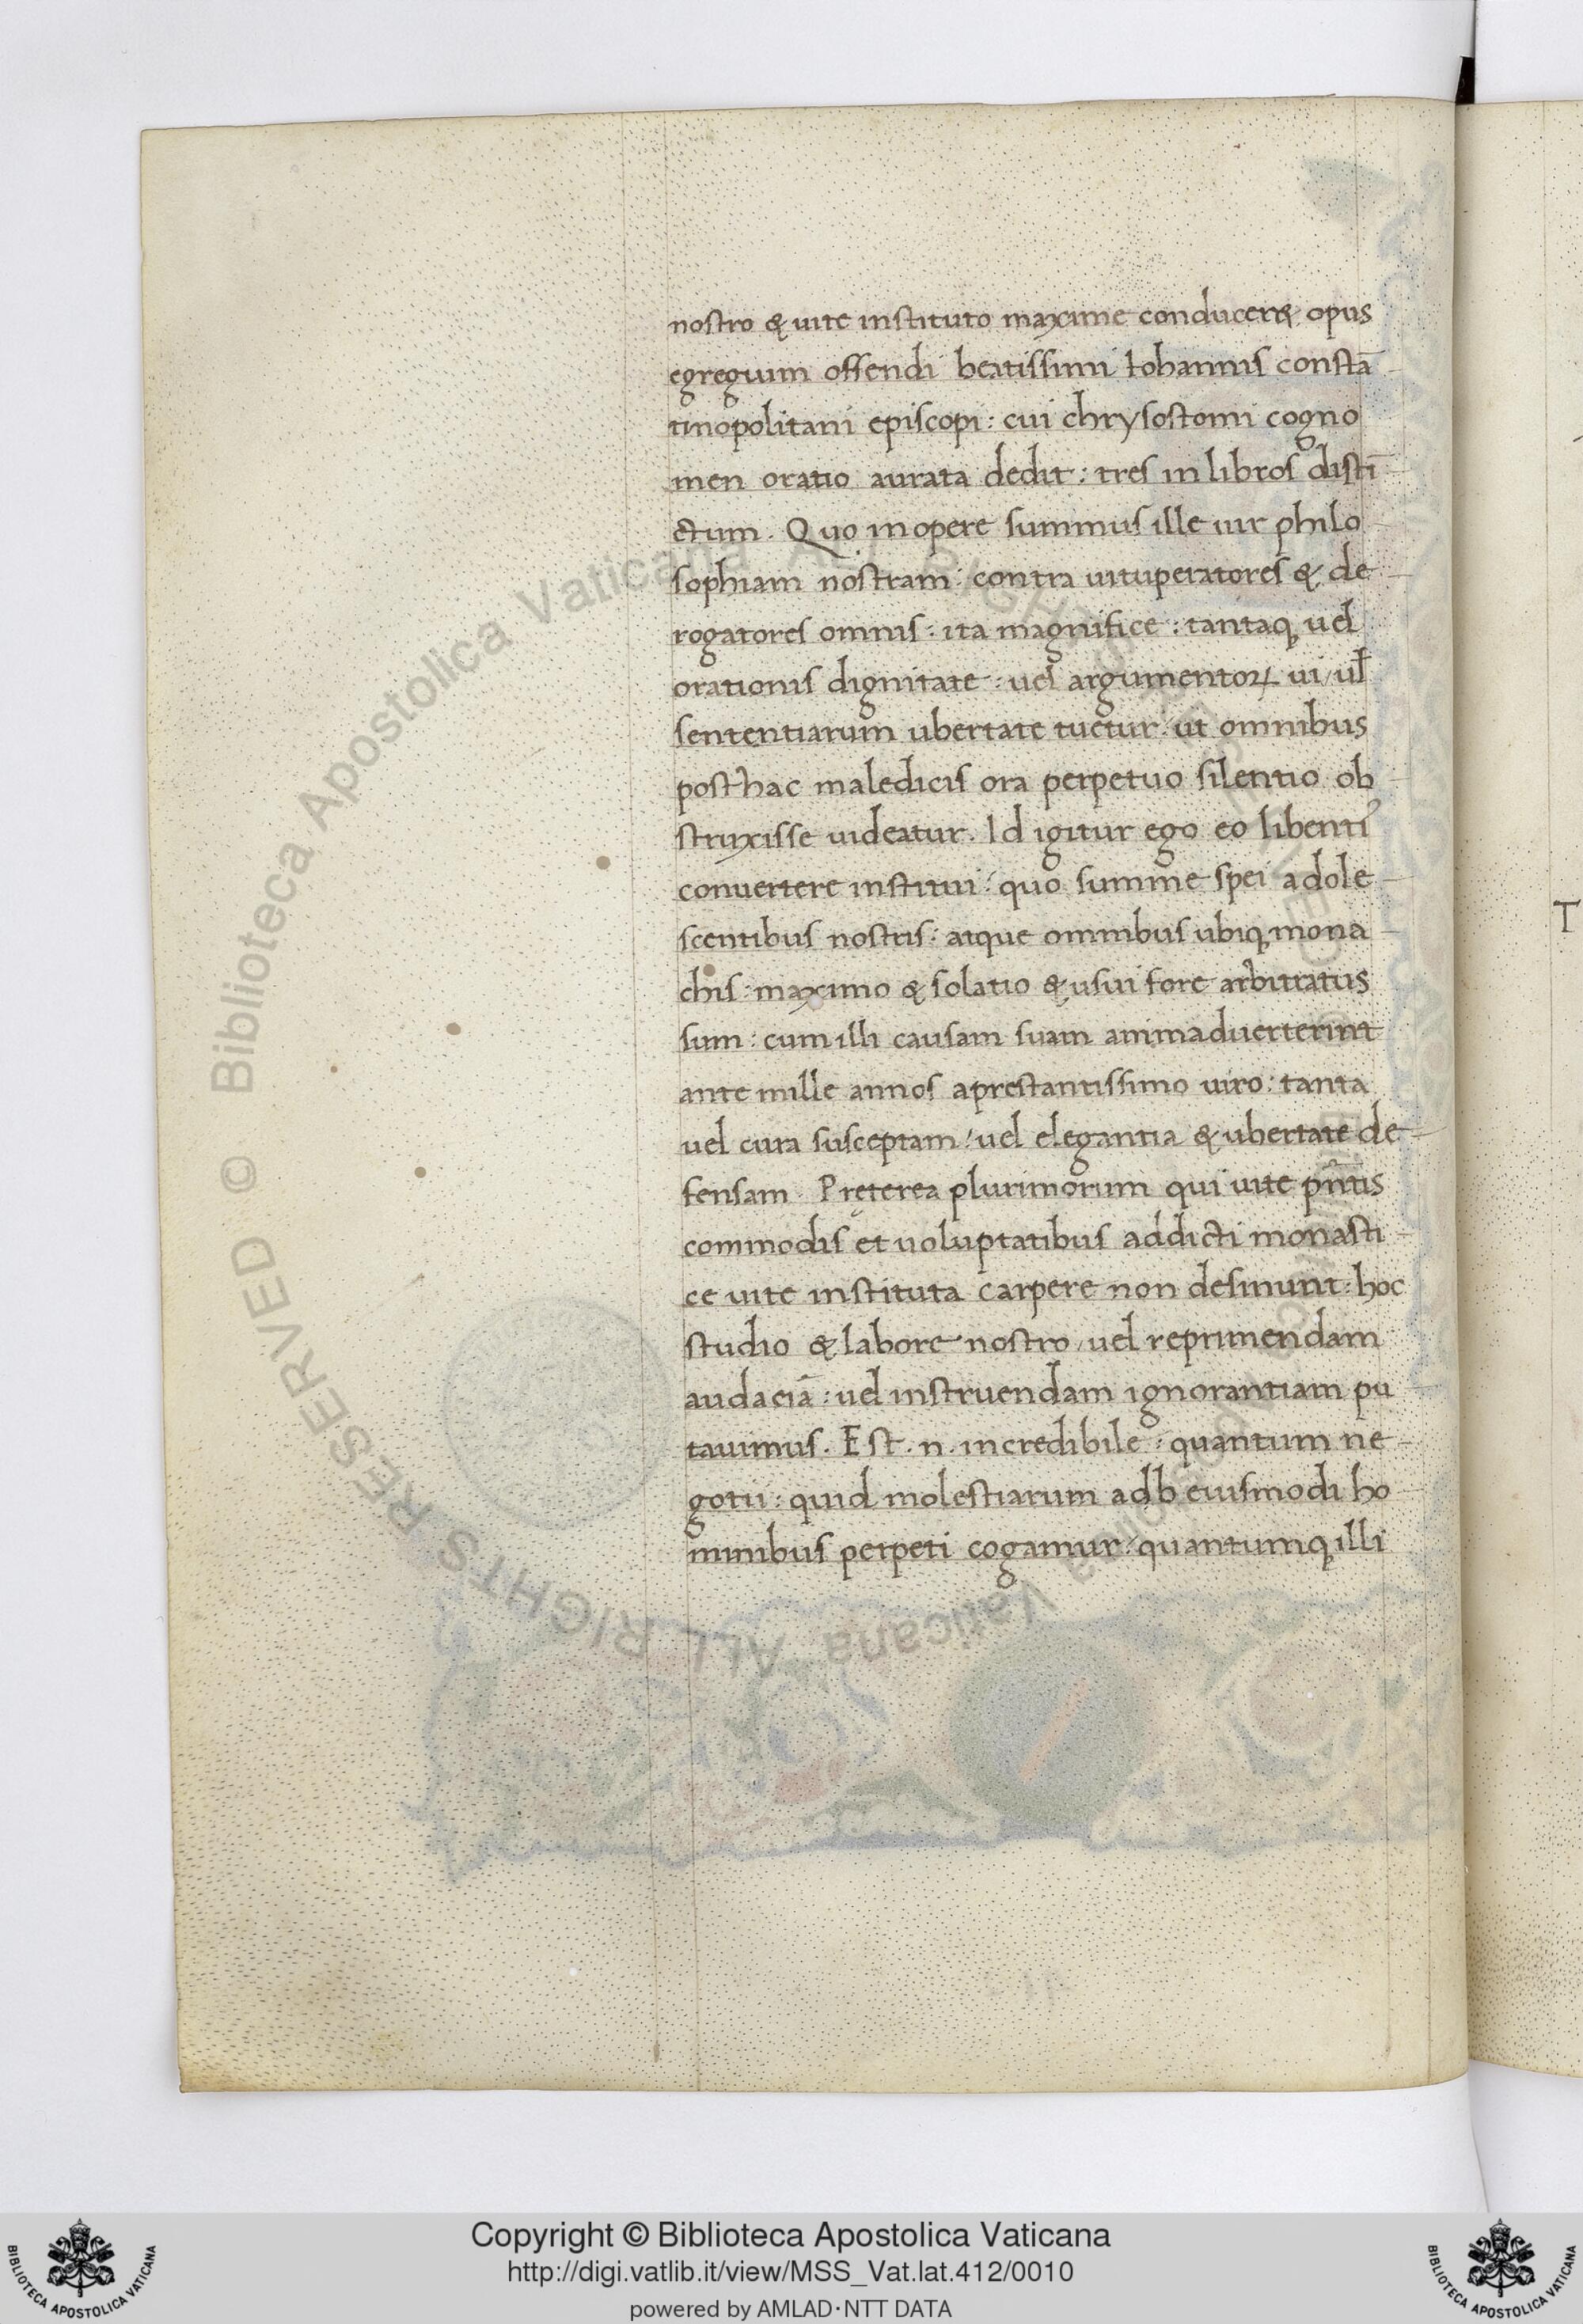 nostro & uite instituto maxime conducens, opus
egregium offendi beatissimi Iohannis constā
tinopolitani episcopi : cui chrysostomi cogno
men oratio aurata dedit : tres in libros distī
ctum . Quo in opere summus ille uir philo
sophiam nostram : contra uituperatores & de
rogatores omnis : ita magnifice : tantaq; uel
orationis dignitate : uel argumentoꝝ ui / ul̄
sententiarum ubertate tuetur : ut omnibus
posthac maledicis ora perpetuo silentio ob
struxisse uideatur . Id igitur ego eo libenti᾽
conuertere institui : quo summe spei adole
scentibus nostris : atque omnibus ubiq; mona
chis : maximo & solatio & usui fore arbitratus
sum : cum illi causam suam animaduerterint
ante mille annos a prestantissimo uiro : tanta
uel cura susceptam / uel elegantia & ubertate de
fensam . Pręterea plurimorum qui uite pn̄tis
commodis et uoluptatibus addicti monasti
ce uite instituta carpere non desinunt : hoc
studio & labore nostro / uel reprimendam
audaciā : uel instruendam ignorantiam pu
tauimus . Est . n . incredibile : quantum ne
gotii : quid molestiarum adb eiusmodi ho
minibus perpeti cogamur : quantumq; illi
T
© Biblioteca Apostolica Vaticana ALL RIGHTS RESERVED
© Biblioteca Apostolica Vaticana ALL RIGHTS RESERVED
Copyright © Biblioteca Apostolica Vaticana
http://digi.vatlib.it/view/MSS_Vat.lat.412/0010
powered by AMLAD·NTT DATA
BIBLIOTECA APOSTOLICA VATICANA
BIBLIOTECA APOSTOLICA VATICANA